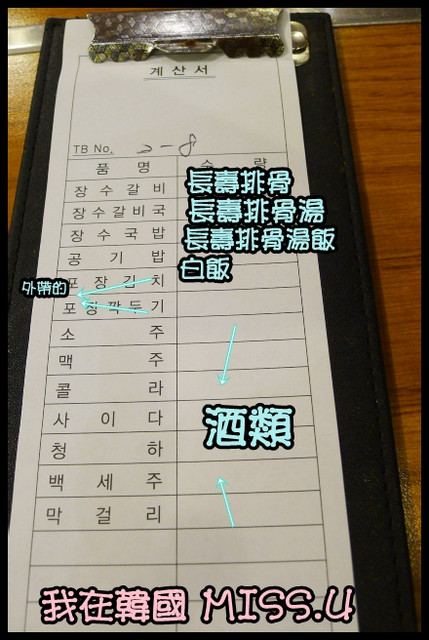 계산서
TB No. 2-8
품 명 수 량
장수갈비 長壽排骨
장수갈비국 長壽排骨湯
장수국밥 長壽排骨湯飯
공기밥 白飯
포장김치
外帶的
포장깍두기
소 주
맥 주
콜 라
사이다 酒類
청 하
백세주
막걸리
我在韓國 MISS.U